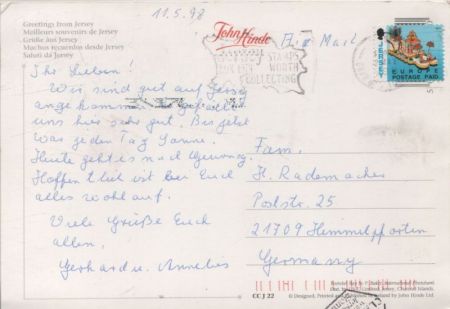 11.5.98
Greetings from Jersey
Meilleurs souvenirs de Jersey
Grüße aus Jersey
Muchos recuerdos desde Jersey
Saluti da Jersey
John Hinde
Air Mail
STAMPS
WORTH
COLLECTING
JERSEY
EUROPE
POSTAGE PAID
Ihr Lieben!
Wir sind gut auf Jersey
angekommen. Es gefällt
uns hier sehr gut. Bis jetzt
war jeden Tag Sonne.
Heute geht es nach Guernsey.
Hoffentlich ist bei Euch
alles wohl auf.
Viele Grüße Euch
allen,
Gerhard u. Annelies
Fam.
H. Rademacher
Poststr. 25
21709 Himmelpforten
Germany
CC J 22
© Designed, Printed and Published in Ireland by John Hinde Ltd.